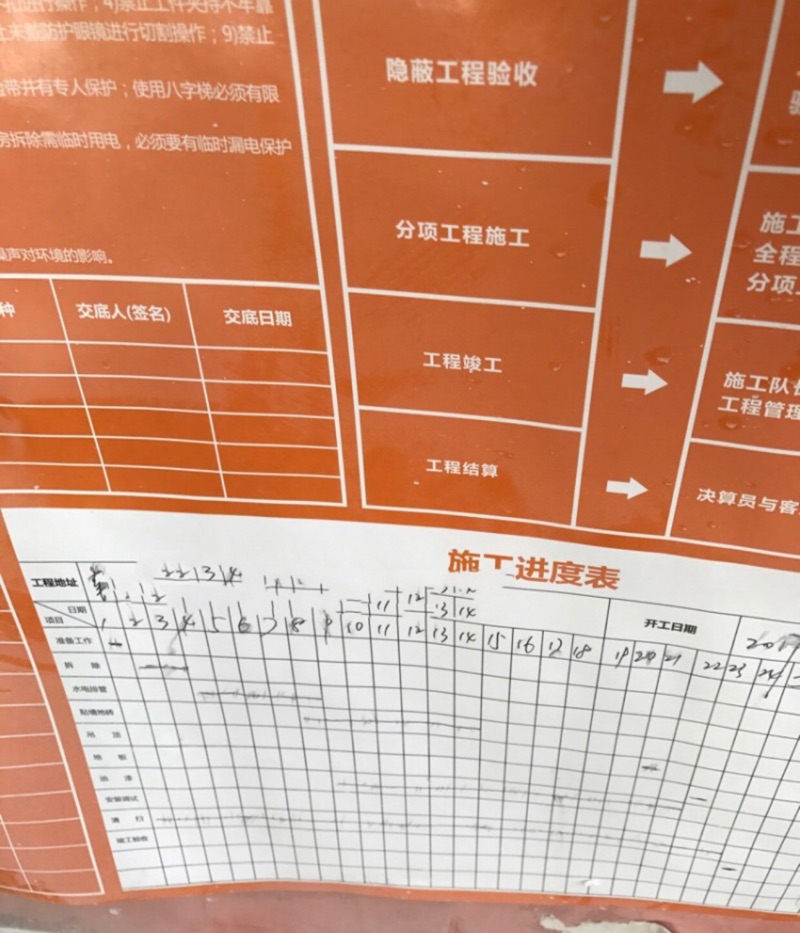 孔进行操作，4)禁止工件夹持不牢靠
未戴防护眼镜进行切割操作；9)禁止
带并有专人保护；使用八字梯必须有限
房拆除需临时用电，必须要有临时漏电保护
噪声对环境的影响。
种
交底人(签名)
交底日期
隐蔽工程验收
分项工程施工
施工
全程
分项
工程竣工
施工队
工程管理
工程结算
决算员与客
施工进度表
工程地址
开工日期
日期
项目
1 2 3 4 5 6 7 8 9 10 11 12 13 14 15 16 17 18 19 20 21 22 23 24
准备工作
拆 除
水电排管
贴墙地砖
吊 顶
地 板
油 漆
安装调试
清 扫
竣工验收